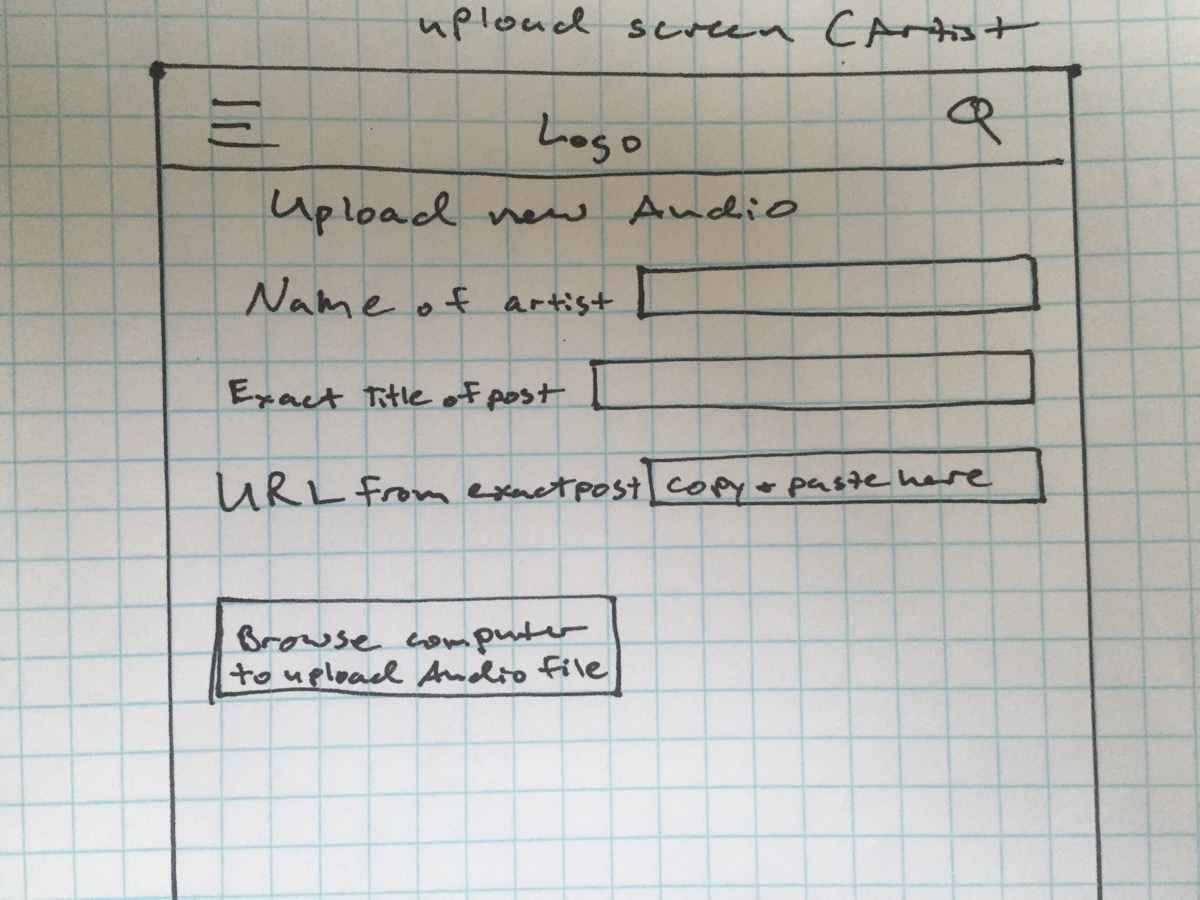 upload screen (Artist
Logo
Upload new Audio
Name of artist
Exact Title of post
URL from exact post copy + paste here
Browse computer
to upload Audio file